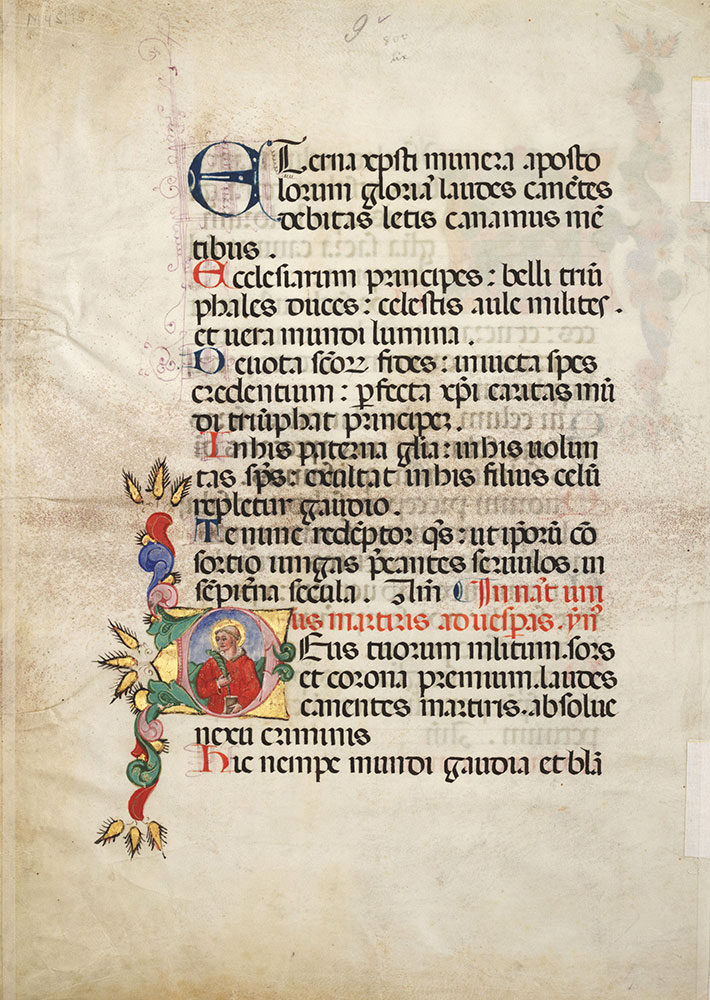 9
ETerna xpsti munera aposto
lorum gloriā laudes canētes
debitas letis canamus mē
tibus .
Ecclesiarum principes : belli triū
phales duces : celestis aule milites .
et uera mundi lumina .
Deuota scōꝝ fides : inuicta spes
credentium : ꝑfecta xp̄i caritas mū
di triūphat principeꝫ .
In his paterna gl̄ia : in his uolun
tas sp̄s : exultat in his filius celū
repletur gaudio .
Te nunc redēptor q̄s : ut ip̄orū cō
sortio iungas p̄cantes seruulos . in
sēpitēna secula . Am̄ In nat̄ uni
us martiris ad uesp̄as . ym̄
DEus tuorum militum . sors
et corona premium . laudes
canentes martiris . absolue
nexu criminis
Hic nempe mundi gaudia et blā